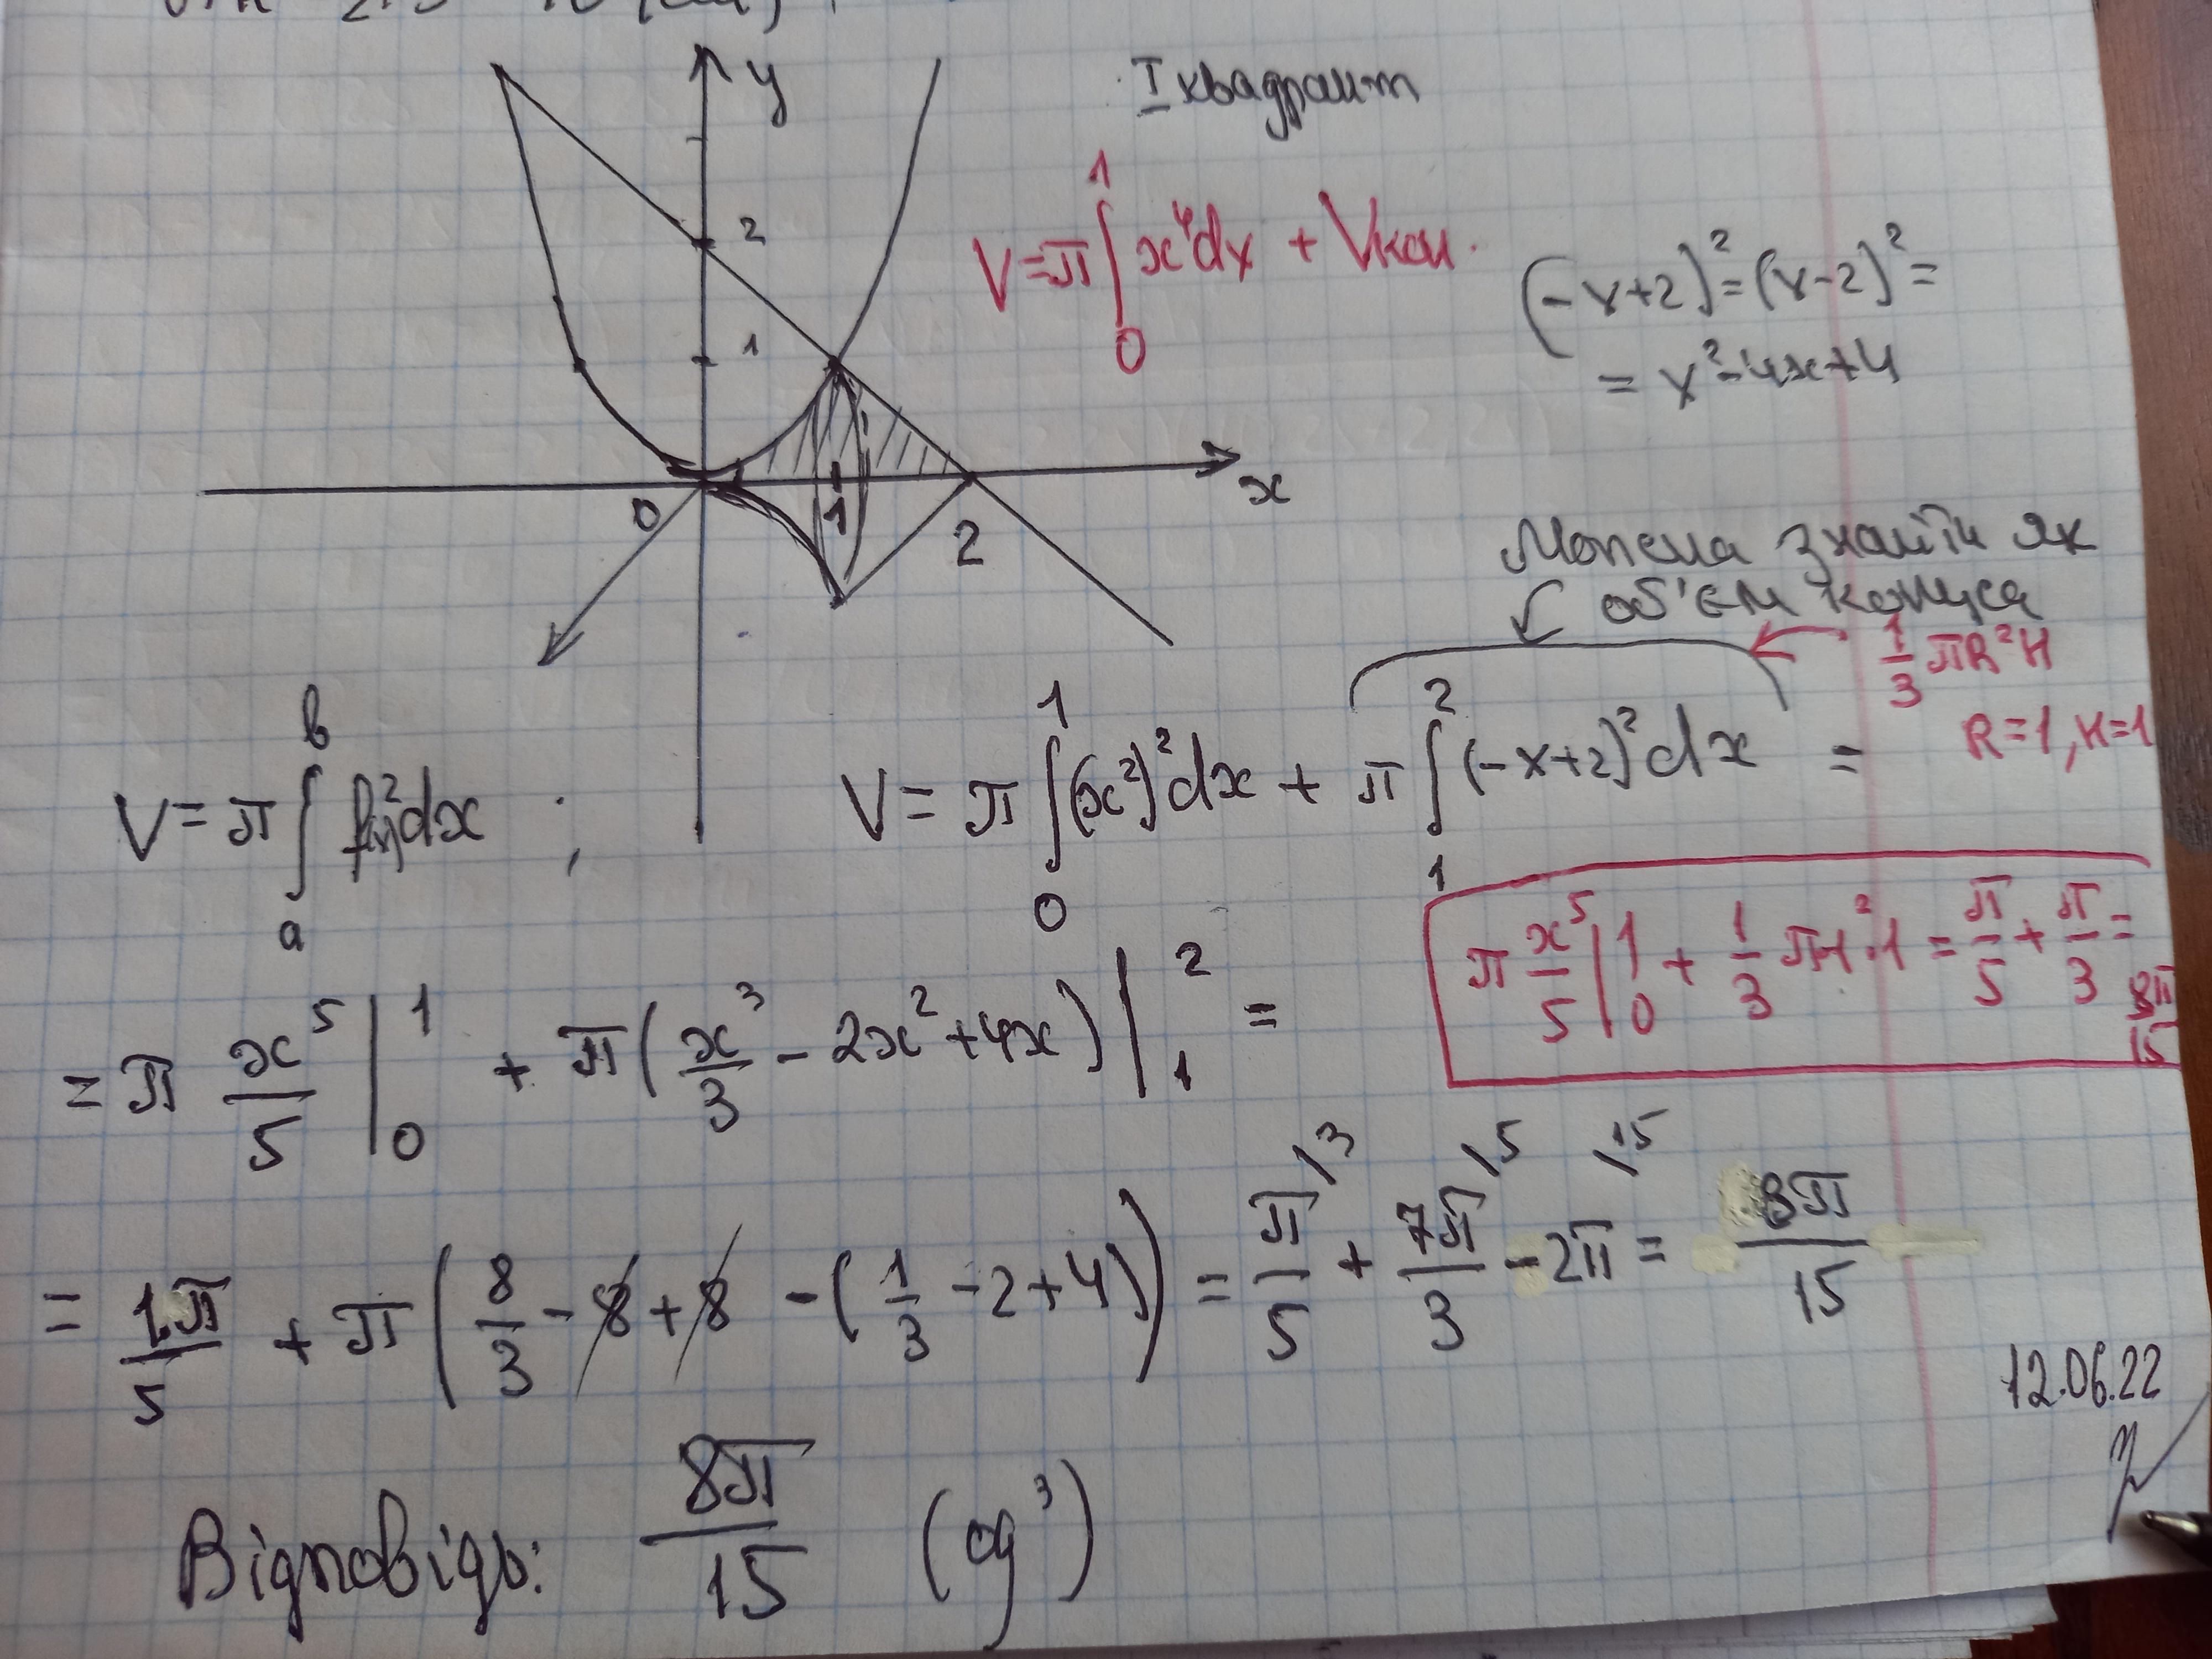 y
I квадрант
2
1
0
1
2
x
V=π∫₀¹ x⁴dx + Vкон.
(-x+2)²=(x-2)²=
= x²-4x+4
Можна знайти як
об'єм конуса
1/3 πR²H
R=1, H=1
V=π∫ₐᵇ f²(x)dx ;
V= π∫₀¹(x²)²dx + π∫₁²(-x+2)²dx =
π x⁵/5 |₀¹ + 1/3 π·1²·1 = π/5 + π/3 = 8π/15
= π x⁵/5 |₀¹ + π(x³/3 - 2x²+4x)|₁² =
= 1π/5 + π(8/3 - 8 + 8 - (1/3 -2+4)) = π/5\3 + 7π/3\5 - 2π\15 = 8π/15
12.06.22
Відповідь: 8π/15 (од³)